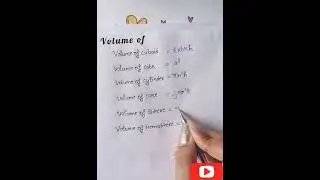 Volume of
Volume of cuboid = l×b×h
Volume of cube = a³
Volume of cylinder = πr²h
Volume of cone = ⅓πr²h
Volume of Sphere =
Volume of Hemisphere =